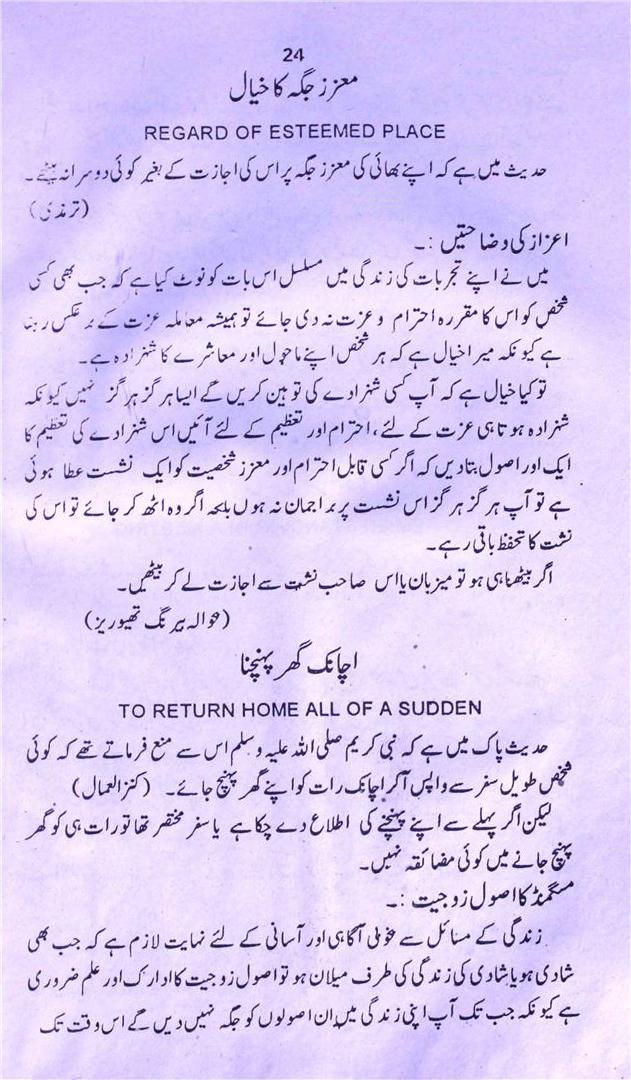 24
معزز جگہ کا خیال
REGARD OF ESTEEMED PLACE
حدیث میں ہے کہ اپنے بھائی کی معزز جگہ پر اس کی اجازت کے بغیر کوئی دوسرا نہ بیٹھے۔
(ترمذی)
اعزاز کی وضاحتیں :۔
میں نے اپنے تجربات کی زندگی میں مسلسل اس بات کو نوٹ کیا ہے کہ جب بھی کسی
شخص کو اس کا مقررہ احترام و عزت نہ دی جائے تو ہمیشہ معاملہ عزت کے برعکس رہتا
ہے کیونکہ میرا خیال ہے کہ ہر شخص اپنے ماحول اور معاشرے کا شہزادہ ہے۔
تو کیا خیال ہے کہ آپ کسی شہزادے کی توہین کریں گے ایسا ہرگز ہرگز نہیں کیونکہ
شہزادہ ہوتا ہی عزت کے لئے، احترام اور تعظیم کے لئے آئیں اس شہزادے کی تعظیم کا
ایک اور اصول بتا دیں کہ اگر کسی قابل احترام اور معزز شخصیت کو ایک نشست عطا ہوئی
ہے تو آپ ہرگز ہرگز اس نشست پر براجمان نہ ہوں بلکہ اگر وہ اٹھ کر جائے تو اس کی
نشت کا تحفظ باقی رہے۔
اگر بیٹھنا ہی ہو تو میزبان یا اس صاحب نشت سے اجازت لے کر بیٹھیں۔
(حوالہ بیرنگ تھیوریز)
اچانک گھر پہنچنا
TO RETURN HOME ALL OF A SUDDEN
حدیث پاک میں ہے کہ نبی کریم صلی اللہ علیہ وسلم اس سے منع فرماتے تھے کہ کوئی
شخص طویل سفر سے واپس آ کر اچانک رات کو اپنے گھر پہنچ جائے۔ (کنز العمال)
لیکن اگر پہلے سے اپنے پہنچنے کی اطلاع دے چکا ہے یا سفر مختصر تھا تو رات ہی کو گھر
پہنچ جانے میں کوئی مضائقہ نہیں۔
سگمنڈ کا اصول زوجیت :۔
زندگی کے مسائل سے خوبی آگاہی اور آسانی کے لئے نہایت لازم ہے کہ جب بھی
شادی ہو یا شادی کی زندگی کی طرف میلان ہو تو اصول زوجیت کا ادراک اور علم ضروری
ہے کیونکہ جب تک آپ اپنی زندگی میں ان اصولوں کو جگہ نہیں دیں گے اس وقت تک